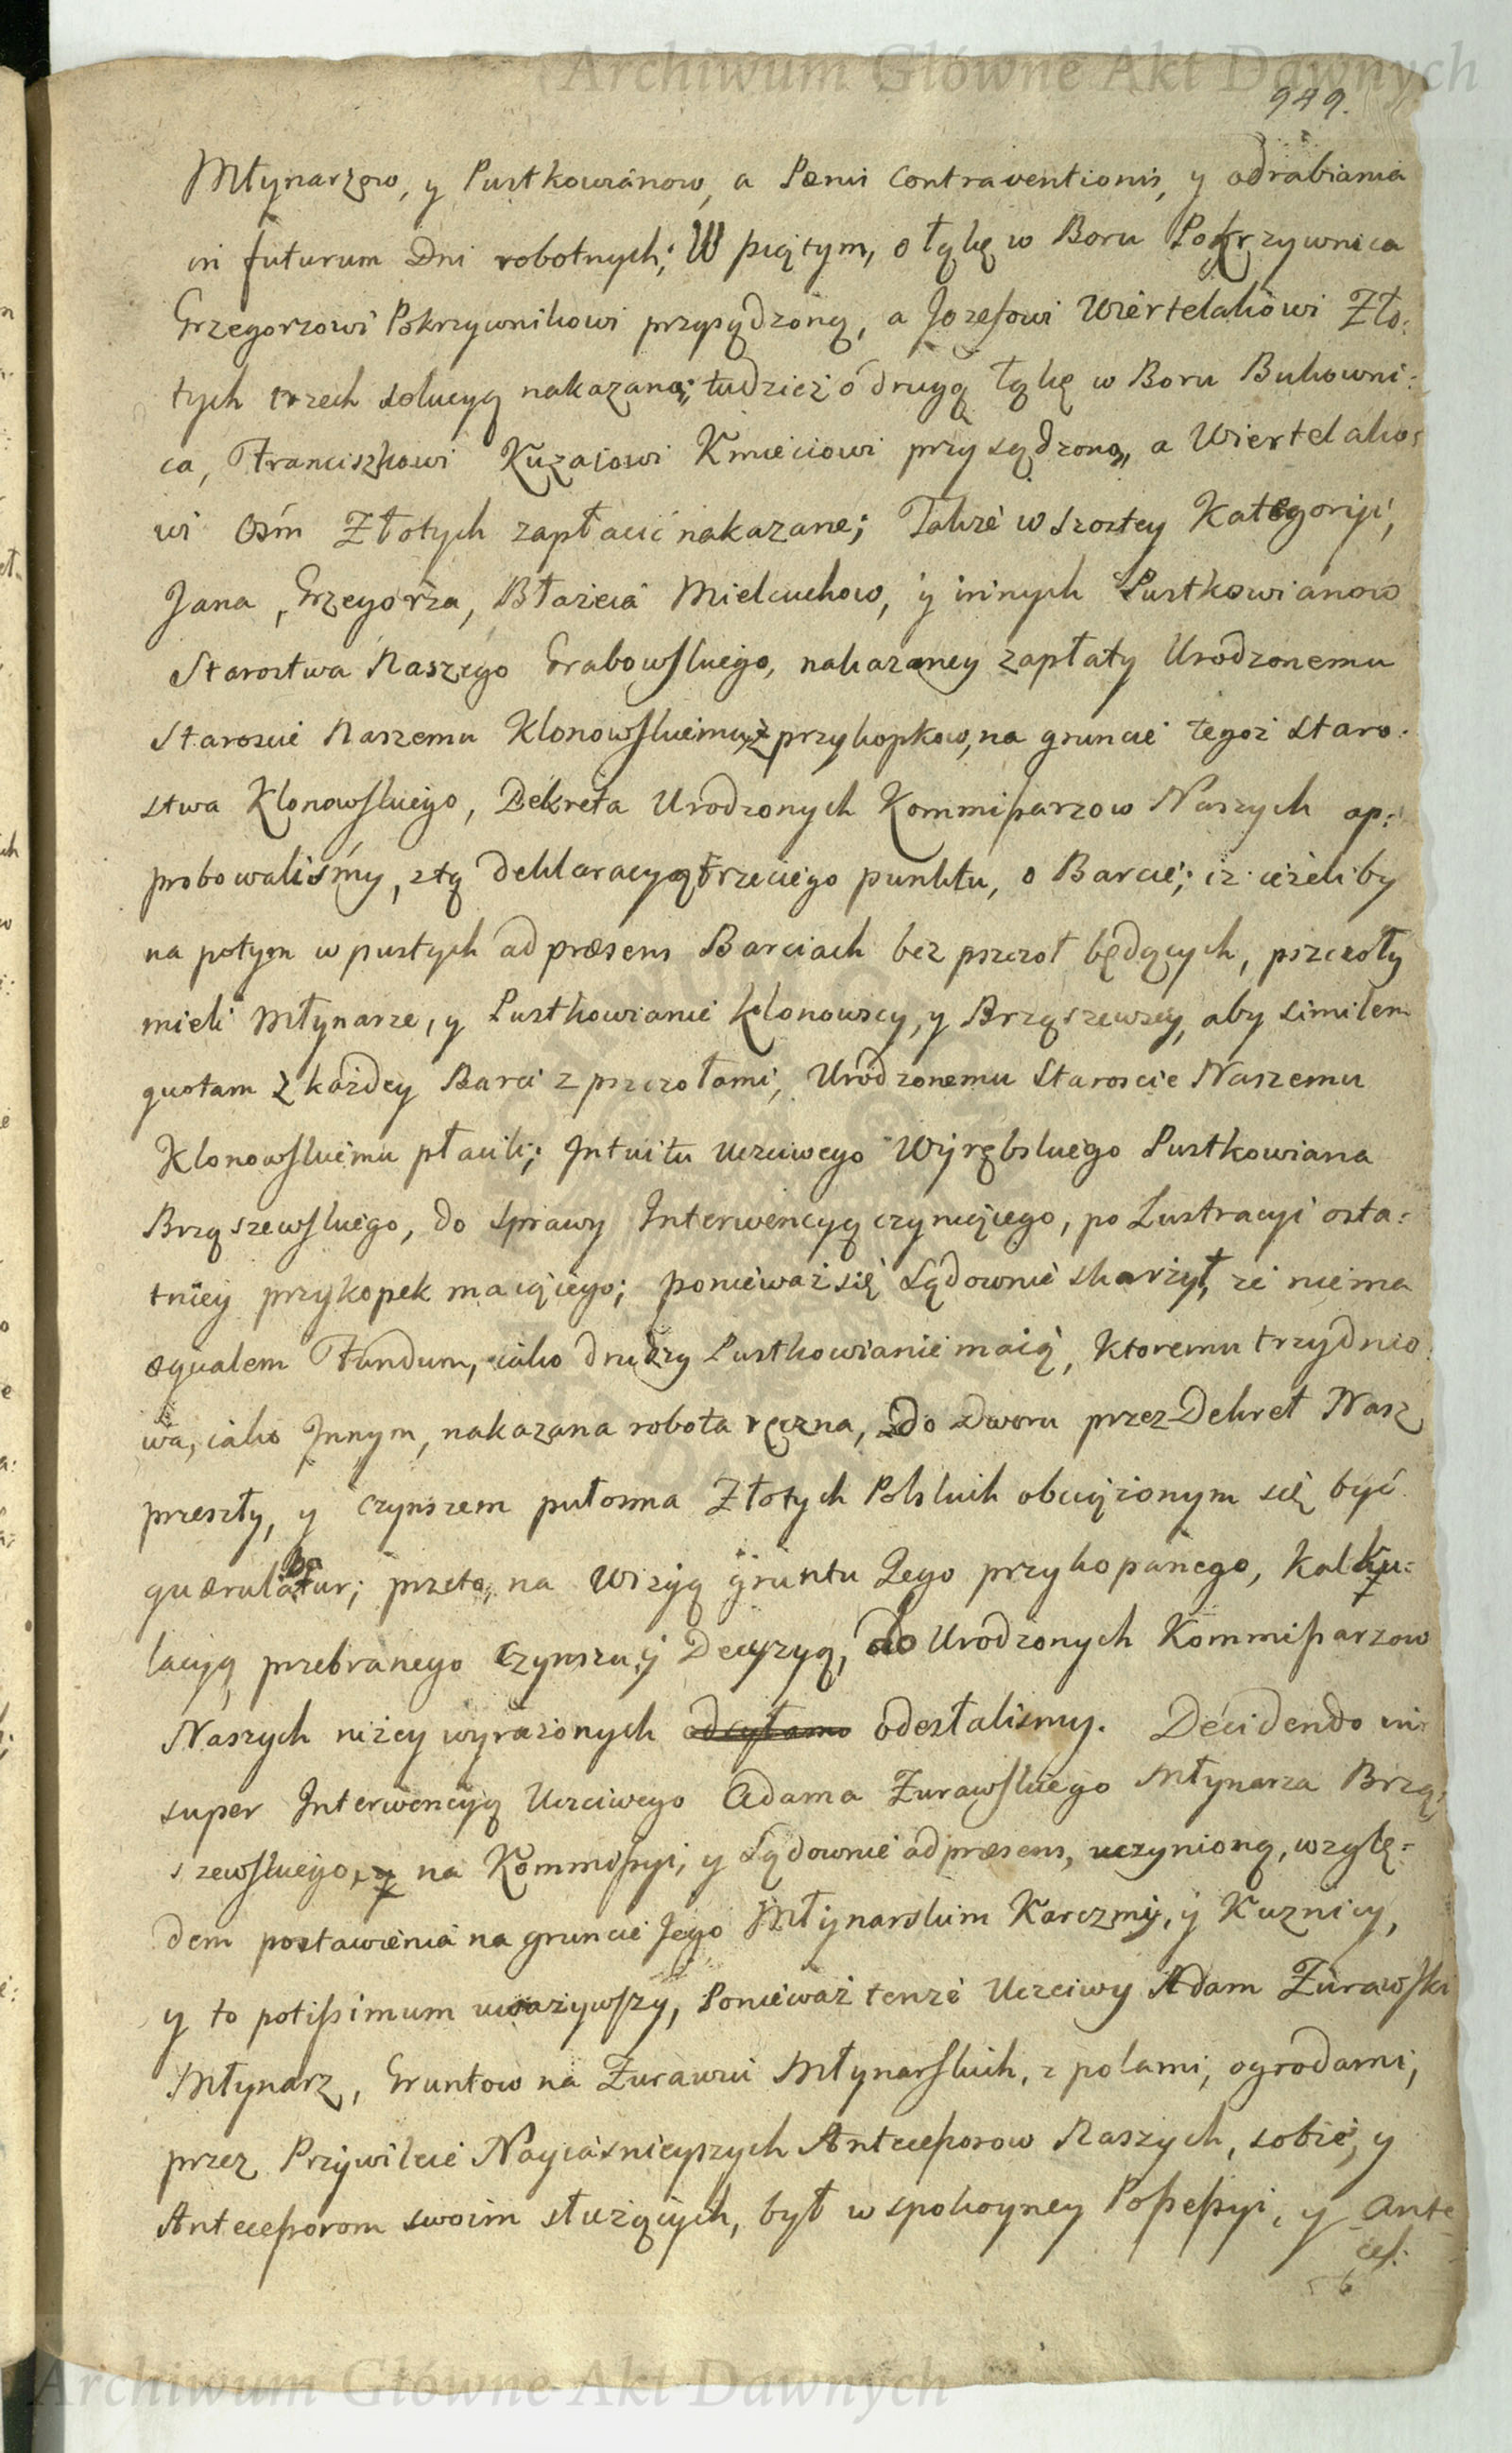 Archiwum Główne Akt Dawnych
949.
Młynarzow, y Pustkowianow, a Pœnis Contraventionis, y odrabiania
in futurum Dni robotnych; W piątym, o łąkę w Boru Pokrzywnica
Grzegorzowi Pokrzywnikowi przysądzoną, a Jozefowi Wiertelakowi Zło:
tych trzech solucyą nakazaną; tudzież o drugą łąkę w Boru Bukowni:
ca, Franciszkowi Kuzaiowi Kmieciowi przysądzoną, a Wiertelako:
wi Osm Złotych zapłacić nakazane; Także w szostey Kategoryi,
Jana, Grzegorza, Błażeia Mielcuchow, y innych Pustkowianow
Starostwa Naszego Grabowskiego, nakazaney zapłaty Urodzonemu
Staroscie Naszemu Klonowskiemu, z przykopkow, na gruncie tegoż Staro:
stwa Klonowskiego, Dekreta Urodzonych Kommissarzow Naszych ap:
probowaliśmy, z tą deklaracyą trzeciego punktu, o Barcie; iż ieżeliby
na potym w pustych ad præsens Barciach bez pszczoł będących, pszczoły
mieli Młynarze, y Pustkowianie Klonowscy, y Brząszewscy, aby similem
quotam z każdey Barci z pszczołami, Urodzonemu Staroscie Naszemu
Klonowskiemu płacili; Intuitu Uczciwego Wyrębskiego Pustkowiana
Brząszewskiego, do sprawy Interwencyą czyniącego, po Lustracyi osta:
tniey przykopek maiącego; ponieważ się Sądownie skarżył, że nie ma
æqualem Fundum, iako drudzy Pustkowianie maią, ktoremu trzydnio:
wa, iako Innym, nakazana robota ręczna, do Dworu przez Dekret Nasz
przeszły, y czynszem pułosma Złotych Polskich obciążonym się być
quærulabatur; przeto, na Wizyą gruntu Jego przykopanego, Kalku:
lacyą przebranego Czynszu, y Decyzyą, do Urodzonych Kommissarzow
Naszych niżey wyrażonych odsyłamo odesłalismy. Decidendo in:
super Interwencyą Uczciwego Adama Żurawskiego Młynarza Brzą:
szewskiego, y na Kommissyi, y Sądownie ad præsens, uczynioną, wzglę:
dem postawienia na gruncie Jego Młynarskim Karczmy, y Kuznicy,
y to potissimum uważywszy, Ponieważ tenże Uczciwy Adam Żurawski
Młynarz, Gruntow na Żurawiu Młynarskich, z polami, ogrodami,
przez Przywileie Nayiaśnieyszych Antecessorow Naszych, sobie, y
Antecessorom swoim służących, był w spokoyney Possessyi, y Ante
ces:
Archiwum Główne Akt Dawnych